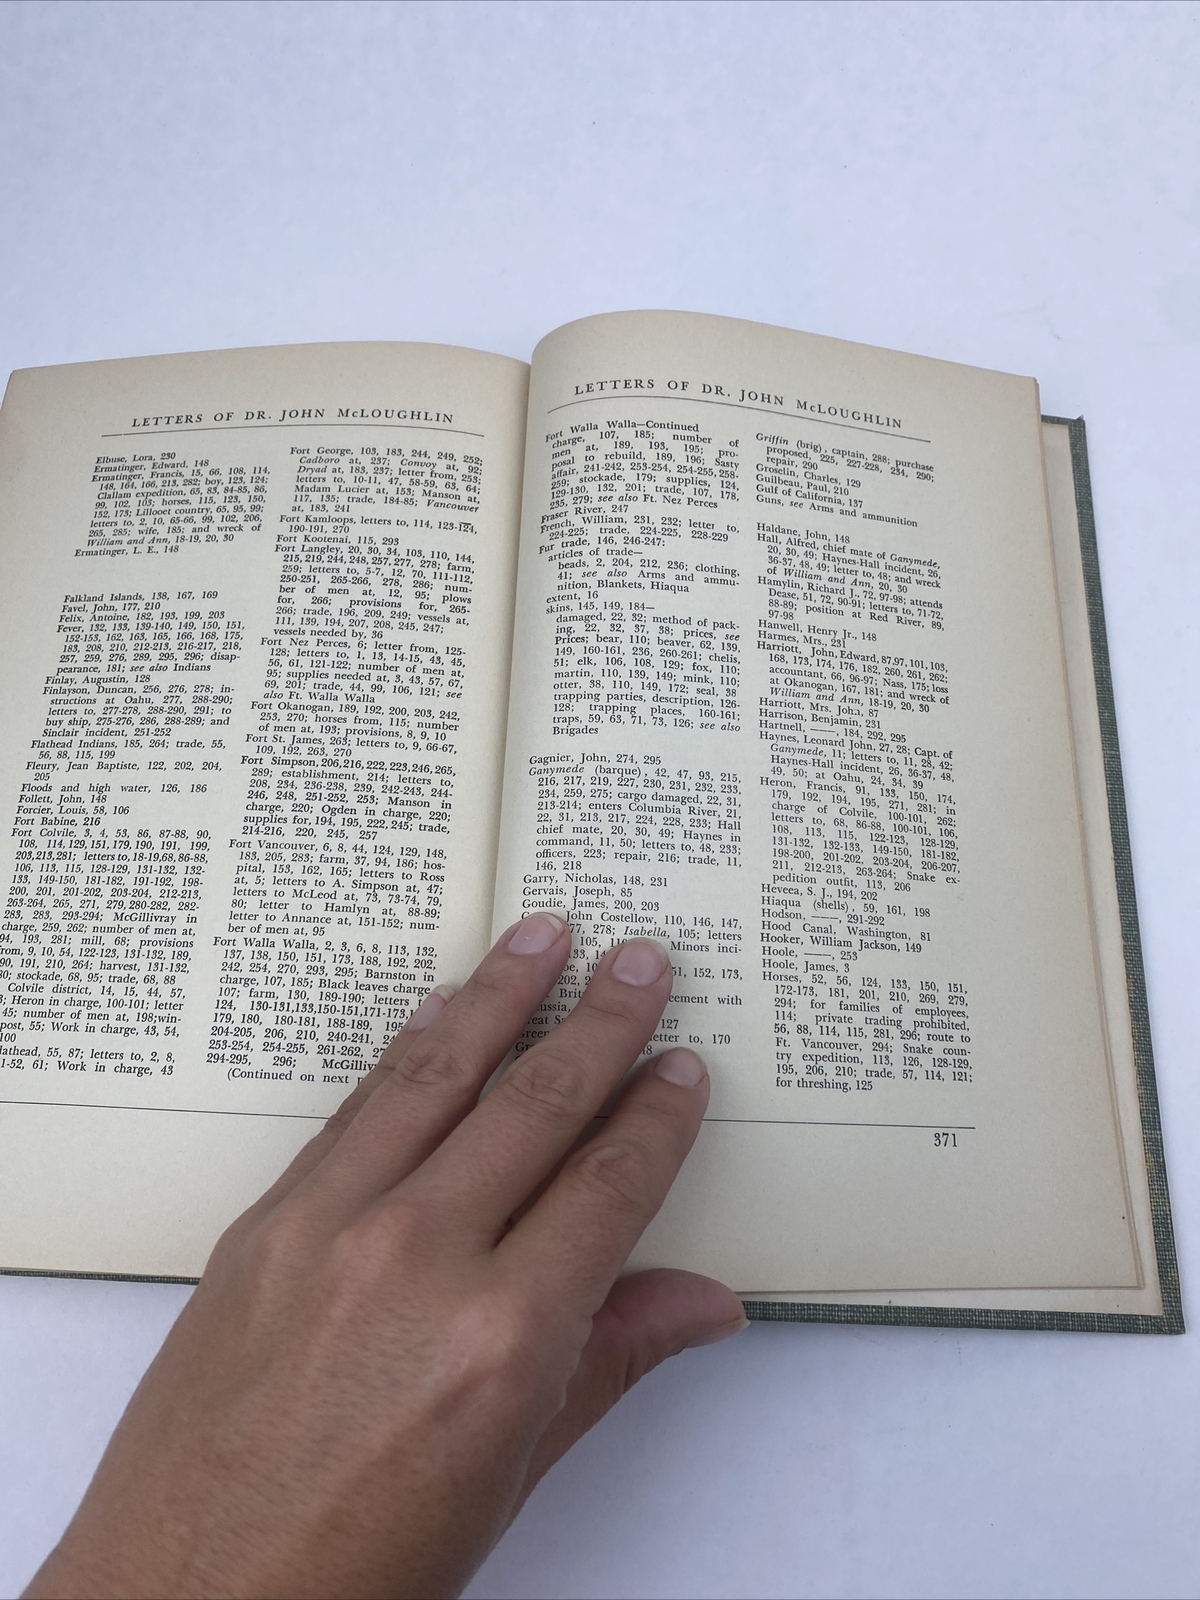 LETTERS OF DR. JOHN McLOUGHLIN
Elbuse, Lora, 230
Ermatinger, Edward, 148
Ermatinger, Francis, 15, 66, 108, 114,
148, 164, 166, 213, 282; boy, 123, 124;
Clallam expedition, 65, 83, 84-85, 86,
99, 102, 103; horses, 115, 123, 150,
152, 173; Lillooet country, 65, 95, 99;
letters to, 2, 10, 65-66, 99, 102, 206,
265, 285; wife, 185; and wreck of
William and Ann, 18-19, 20, 30
Ermatinger, L. E., 148
Falkland Islands, 138, 167, 169
Favel, John, 177, 210
Felix, Antoine, 182, 193, 199, 203
Fever, 132, 133, 139-140, 149, 150, 151,
152-153, 162, 163, 165, 166, 168, 175,
183, 208, 210, 212-213, 216-217, 218,
257, 259, 276, 289, 295, 296; disap-
pearance, 181; see also Indians
Finlay, Augustin, 128
Finlayson, Duncan, 256, 276, 278; in-
structions at Oahu, 277, 288-290;
letters to, 277-278, 288-290, 291; to
buy ship, 275-276, 286, 288-289; and
Sinclair incident, 251-252
Flathead Indians, 185, 264; trade, 55,
56, 88, 115, 199
Fleury, Jean Baptiste, 122, 202, 204,
205
Floods and high water, 126, 186
Follett, John, 148
Forcier, Louis, 58, 106
Fort Babine, 216
Fort Colvile, 3, 4, 53, 86, 87-88, 90,
108, 114, 129, 151, 179, 190, 191, 199,
203, 213, 281; letters to, 18-19, 68, 86-88,
106, 113, 115, 128-129, 131-132, 132-
133, 149-150, 181-182, 191-192, 198-
200, 201-202, 203-204, 212-213,
263-264, 265, 271, 279, 280-282, 282-
283, 283, 293-294; McGillivray in
charge, 259, 262; number of men at,
94, 193, 281; mill, 68; provisions
from, 9, 10, 54, 122-123, 131-132, 189,
190, 191, 210, 264; harvest, 131-132,
80; stockade, 68, 95; trade, 68, 88
Colvile district, 14, 15, 44, 57,
3; Heron in charge, 100-101; letter
45; number of men at, 198; win-
post, 55; Work in charge, 43, 54,
100
lathead, 55, 87; letters to, 2, 8,
1-52, 61; Work in charge, 43
Fort George, 103, 183, 244, 249, 252;
Cadboro at, 237; Convoy at, 92;
Dryad at, 183, 237; letter from, 253;
letters to, 10-11, 47, 58-59, 63, 64;
Madam Lucier at, 153; Manson at,
117, 135; trade, 184-85; Vancouver
at, 183, 241
Fort Kamloops, letters to, 114, 123-124,
190-191, 270
Fort Kootenai, 115, 293
Fort Langley, 20, 30, 34, 103, 110, 144,
215, 219, 244, 248, 257, 277, 278; farm,
259; letters to, 5-7, 12, 70, 111-112,
250-251, 265-266, 278, 286; num-
ber of men at, 12, 95; plows
for, 266; provisions for, 265-
266; trade, 196, 209, 249; vessels at,
111, 139, 194, 207, 208, 245, 247;
vessels needed by, 36
Fort Nez Perces, 6; letter from, 125-
128; letters to, 1, 13, 14-15, 43, 45,
56, 61, 121-122; number of men at,
95; supplies needed at, 3, 43, 57, 67,
69, 201; trade, 44, 99, 106, 121; see
also Ft. Walla Walla
Fort Okanogan, 189, 192, 200, 203, 242,
253, 270; horses from, 115; number
of men at, 193; provisions, 8, 9, 10
Fort St. James, 263; letters to, 9, 66-67,
109, 192, 263, 270
Fort Simpson, 206, 216, 222, 223, 246, 265,
289; establishment, 214; letters to,
208, 234, 236-238, 239, 242-243, 244-
246, 248, 251-252, 253; Manson in
charge, 220; Ogden in charge, 220;
supplies for, 194, 195, 222, 245; trade,
214-216, 220, 245, 257
Fort Vancouver, 6, 8, 44, 124, 129, 148,
183, 205, 283; farm, 37, 94, 186; hos-
pital, 153, 162, 165; letters to Ross
at, 5; letters to A. Simpson at, 47;
letters to McLeod at, 73, 73-74, 79,
80; letter to Hamlyn at, 88-89;
letter to Annance at, 151-152; num-
ber of men at, 95
Fort Walla Walla, 2, 3, 6, 8, 113, 132,
137, 138, 150, 151, 173, 188, 192, 202,
242, 254, 270, 293, 295; Barnston in
charge, 107; Black leaves charge,
107; farm, 130, 189-190; letters
124, 130-131, 133, 150-151, 171-173,
179, 180, 180-181, 188-189, 195
204-205, 206, 210, 240-241,
253-254, 254-255, 261-262,
294-295, 296; McGilliv
(Continued on next p
LETTERS OF DR. JOHN McLOUGHLIN
Fort Walla Walla—Continued
charge, 107, 185; number of
men at, 189, 193, 195; pro-
posal to rebuild, 189, 196; Sasty
affair, 241-242, 253-254, 254-255, 258-
259; stockade, 179; supplies, 124,
129-130, 132, 201; trade, 107, 178,
235, 279; see also Ft. Nez Perces
Fraser River, 247
French, William, 231, 232; letter to,
224-225; trade, 224-225, 228-229
Fur trade, 146, 246-247;
articles of trade—
beads, 2, 204, 212, 236; clothing,
41; see also Arms and ammu-
nition, Blankets, Hiaqua
extent, 16
skins, 145, 149, 184—
damaged, 22, 32; method of pack-
ing, 22, 32, 37, 38; prices, see
Prices; bear, 110; beaver, 62, 139,
149, 160-161, 236, 260-261; chelis,
51; elk, 106, 108, 129; fox, 110;
martin, 110, 139, 149; mink, 110;
otter, 38, 110, 149, 172; seal, 38
trapping parties, description, 126-
128; trapping places, 160-161;
traps, 59, 63, 71, 73, 126; see also
Brigades
Gagnier, John, 274, 295
Ganymede (barque), 42, 47, 93, 215,
216, 217, 219, 227, 230, 231, 232, 233,
234, 259, 275; cargo damaged, 22, 31,
213-214; enters Columbia River, 21,
22, 31, 213, 217, 224, 228, 233; Hall
chief mate, 20, 30, 49; Haynes in
command, 11, 50; letters to, 48, 233;
officers, 223; repair, 216; trade, 11,
146, 218
Garry, Nicholas, 148, 231
Gervais, Joseph, 85
Goudie, James, 200, 203
John Costellow, 110, 146, 147,
77, 278; Isabella, 105; letters
105, Minors inci-
51, 152, 173,
Brit eement with
ussia,
127
etter to, 170
Griffin (brig), captain, 288; purchase
proposed, 225, 227-228, 234, 290;
repair, 290
Groselin, Charles, 129
Guilbeau, Paul, 210
Gulf of California, 137
Guns, see Arms and ammunition
Haldane, John, 148
Hall, Alfred, chief mate of Ganymede,
20, 30, 49; Haynes-Hall incident, 26,
36-37, 48, 49; letter to, 48; and wreck
of William and Ann, 20, 30
Hamylin, Richard J., 72, 97-98; attends
Dease, 51, 72, 90-91; letters to, 71-72,
88-89; position at Red River, 89,
97-98
Hanwell, Henry Jr., 148
Harmes, Mrs., 231
Harriott, John, Edward, 87, 97, 101, 103,
168, 173, 174, 176, 182, 260, 261, 262;
accountant, 66, 96-97; Nass, 175; loss
at Okanogan, 167, 181; and wreck of
William and Ann, 18-19, 20, 30
Harriott, Mrs. John, 87
Harrison, Benjamin, 231
Hartnell, ——, 184, 292, 295
Haynes, Leonard John, 27, 28; Capt. of
Ganymede, 11; letters to, 11, 28, 42;
Haynes-Hall incident, 26, 36-37, 48,
49, 50; at Oahu, 24, 34, 39
Heron, Francis, 91, 133, 150, 174,
179, 192, 194, 195, 271, 281; in
charge of Colvile, 100-101, 262;
letters to, 68, 86-88, 100-101, 106,
108, 113, 115, 122-123, 128-129,
131-132, 132-133, 149-150, 181-182,
198-200, 201-202, 203-204, 206-207,
211, 212-213, 263-264; Snake ex-
pedition outfit, 113, 206
Heveea, S. J., 194, 202
Hiaqua (shells), 59, 161, 198
Hodson, ——, 291-292
Hood Canal, Washington, 81
Hooker, William Jackson, 149
Hoole, ——, 253
Hoole, James, 3
Horses, 52, 56, 124, 133, 150, 151,
172-173, 181, 201, 210, 269, 279,
294; for families of employees,
114; private trading prohibited,
56, 88, 114, 115, 281, 296; route to
Ft. Vancouver, 294; Snake coun-
try expedition, 113, 126, 128-129,
195, 206, 210; trade, 57, 114, 121;
for threshing, 125
371